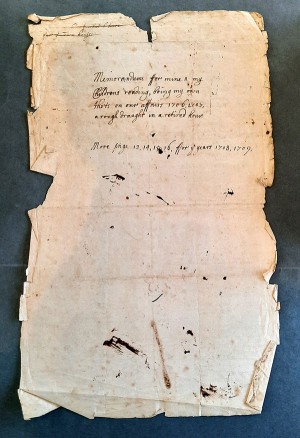 for
Memorandums for mine & my
Childrens reading, being my own
thots on our affairs 1706, 1707,
a rough draught in a retired hour
More page 13, 14, 15, 16, ffor ye years 1708, 1709,